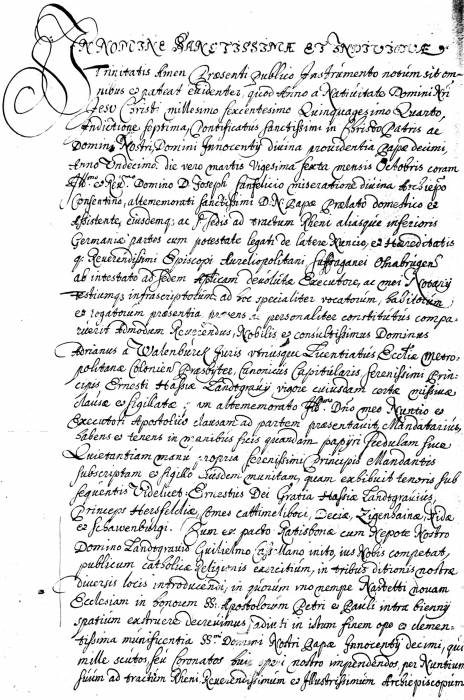 IN NOMINE SANCTISSIMÆ ET INDIVIDUÆ
Trinitatis Amen Præsenti publico Instrumento notum sit om-
nibus et pateat evidenter, quod Anno a Nativitate Domini Nri
Jesu Christi millesimo sexcentesimo Quinquagesimo Quarto,
Indictione septima, Pontificatus sanctissimi in Christo Patris ac
Domini Nostri Domini Innocenty divina providentia Papæ decimi,
Anno Undecimo, die vero martis Vigesima sexta mensis Octobris coram
Illmo et Revmo Domino D. Joseph Sanfelicio miseratione divina Archiepo
Consentino, altememorati sanctissimi D. N. Papæ Prælato domestico et
Assistente, eiusdemq; ac Sæ sedis ad tractum Rheni aliasque inferioris
Germaniæ partes cum potestate legati de latere Nuncio, et Hæreditatis
q; Reverendissimi Episcopi Aureliopolitani Suffraganei Osnabrugens
ab intestato ad sedem Aplicam devolutæ Executore, ac mei Notary
testiumq; infrascriptorum, ad hoc specialiter vocatorum, habitorum
et rogatorum præsentia præsens et personaliter constitutus compa-
ruerit Admodum Reverendus, Nobilis et consultissimus Dominus
Adrianus a Walenburck Juris utriusque Licentiatus Ecclæ Metro-
politanæ Colonien Presbyter, Canonicus Capitularis Serenissimi Prin-
cipis Ernesti Hassiæ Landtgravy vigore cuiusdam certæ missivæ
clausæ et sigillatæ; altememorato Illmo Dno meo Nuntio et
Executori Apostolico clausam ad partem præsentavit, Mandatarius,
habens et tenens in manibus suis quandam papyri schedulam sive
Quietantiam manu propria serenissimi Principis Mandantis
subscriptam et sigillo eiusdem munitam, quam exhibuit tenoris sub
sequentis Videlicet: Ernestus Dei Gratia Hassiæ Landtgravius,
Princeps Hersfeldiæ Comes Cattimeliboci, Deciæ, Zigenhainæ, Nidæ
et Schawenburgi. Cum ex pacto Ratisbonæ cum Nepote Nostro
Domino Landtgravio Guilielmo inito, ius Nobis competat,
publicum catholicæ Religionis exercitium, in tribus ditionis nostræ
diversis locis introducendi, in quorum uno nempe Nastetti novam
Ecclesiam in honorem SS. Apostolorum Petri et Pauli intra bienny
spatium extruere decrevimus, adiuti in istum finem ope et clemen-
tissima munificentia SSmi Domini Nostri Papæ Innocenty decimi, qui
mille scutos, seu coronatos huic operi nostro impendendos, per Nuntium
suum ad tractum Rheni Reverendissimum et Illustrissimum Archiepiscopum